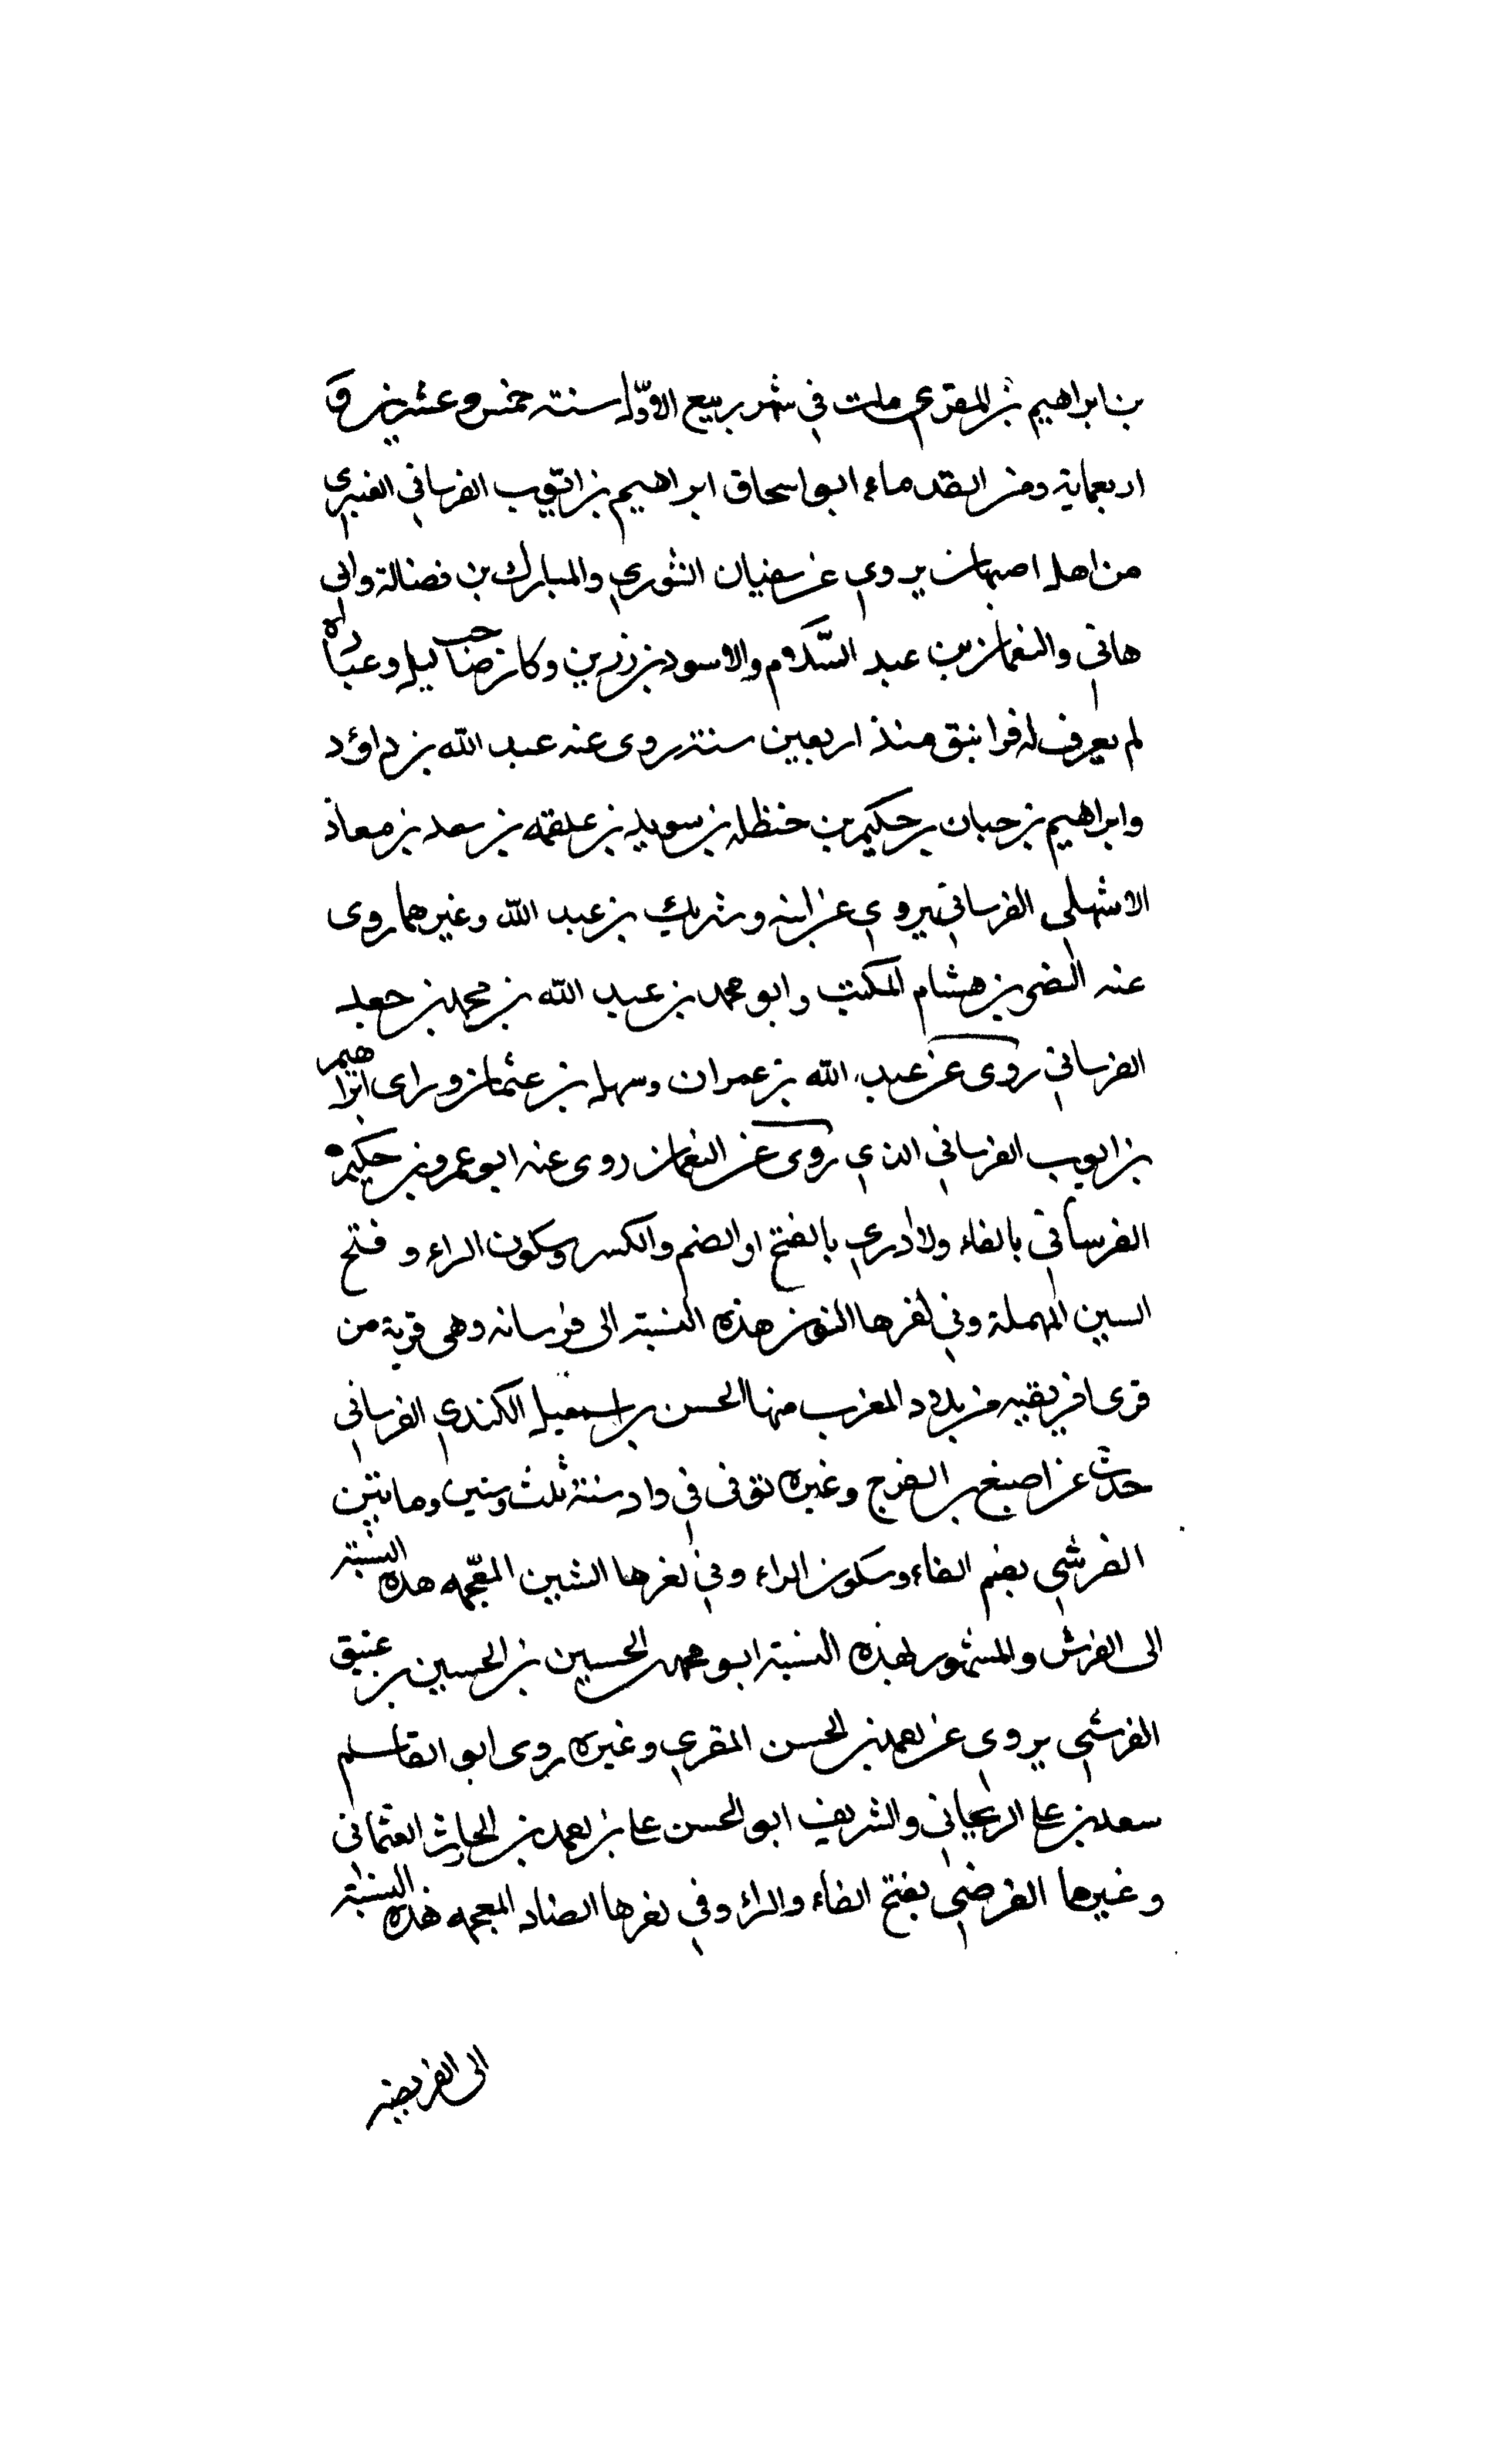 بن ابراهيم بن المقرى مات في شهر ربيع الاوّل سنة خمس وعشرين و
اربعماية ومن القدماء ابو اسحاق ابراهيم بن ايّوب الفرساني العنبري
من اهل اصبهان يروى عن سفيان الثوري والمبارك بن فضالة وابي
هانى والنعمان بن عبد السَّلام والاسود بن رزين وكان صاحب ليل وعبادة
لم يعرف له فراش منذ اربعين سنة روى عنه عبد الله بن داؤد
وابراهيم بن حبان بن حكيم بن حنظلة بن سويد بن علقمة بن سعد بن معاذ
الاشهلى الفرساني يروى عن ابيه وشريك بن عبد الله وغيرهما روى
عنه النضر بن هشام المكتب وابو محمد بن عبد الله بن محمد بن
الفرساني روى عن عبد الله بن عمران وسهل بن عثمان وراى ابراهيم
بن ايوب الفرساني الذي روى عن النعمان روى عنه ابو عمرو بن حكيم ه
الفرساني بالفاء ولا ادري بالفتح او الضم والكسر وسكون الراء و فتح
السين المهملة وفي اخرها النون هذه النسبة الى فرسانه وهى قرية من
قرى افريقيه من بلاد المغرب منها الحسن بن اسمعيل الكندي الفرساني
حدّث عن اصبغ بن الفرج وغيره توفى في سنة ثلث وستين ومائتين
الفرشي بضم الفاء وسكون الراء وفي اخرها الشين المعجمه هذه النسبة
الى الفرش والمشهور بهذه النسبة ابو محمد الحسين بن الحسين بن عتيق
الفرشي يروى عن احمد بن الحسن المقري وغيره روى ابو القاسم
سعد بن على الريحاني والشريف ابو الحسن على بن احمد بن الحارث العثماني
وغيرها الفرضى بفتح الفاء والراء وفي اخرها الضاد المعجمه هذه النسبة
الى الفريضة